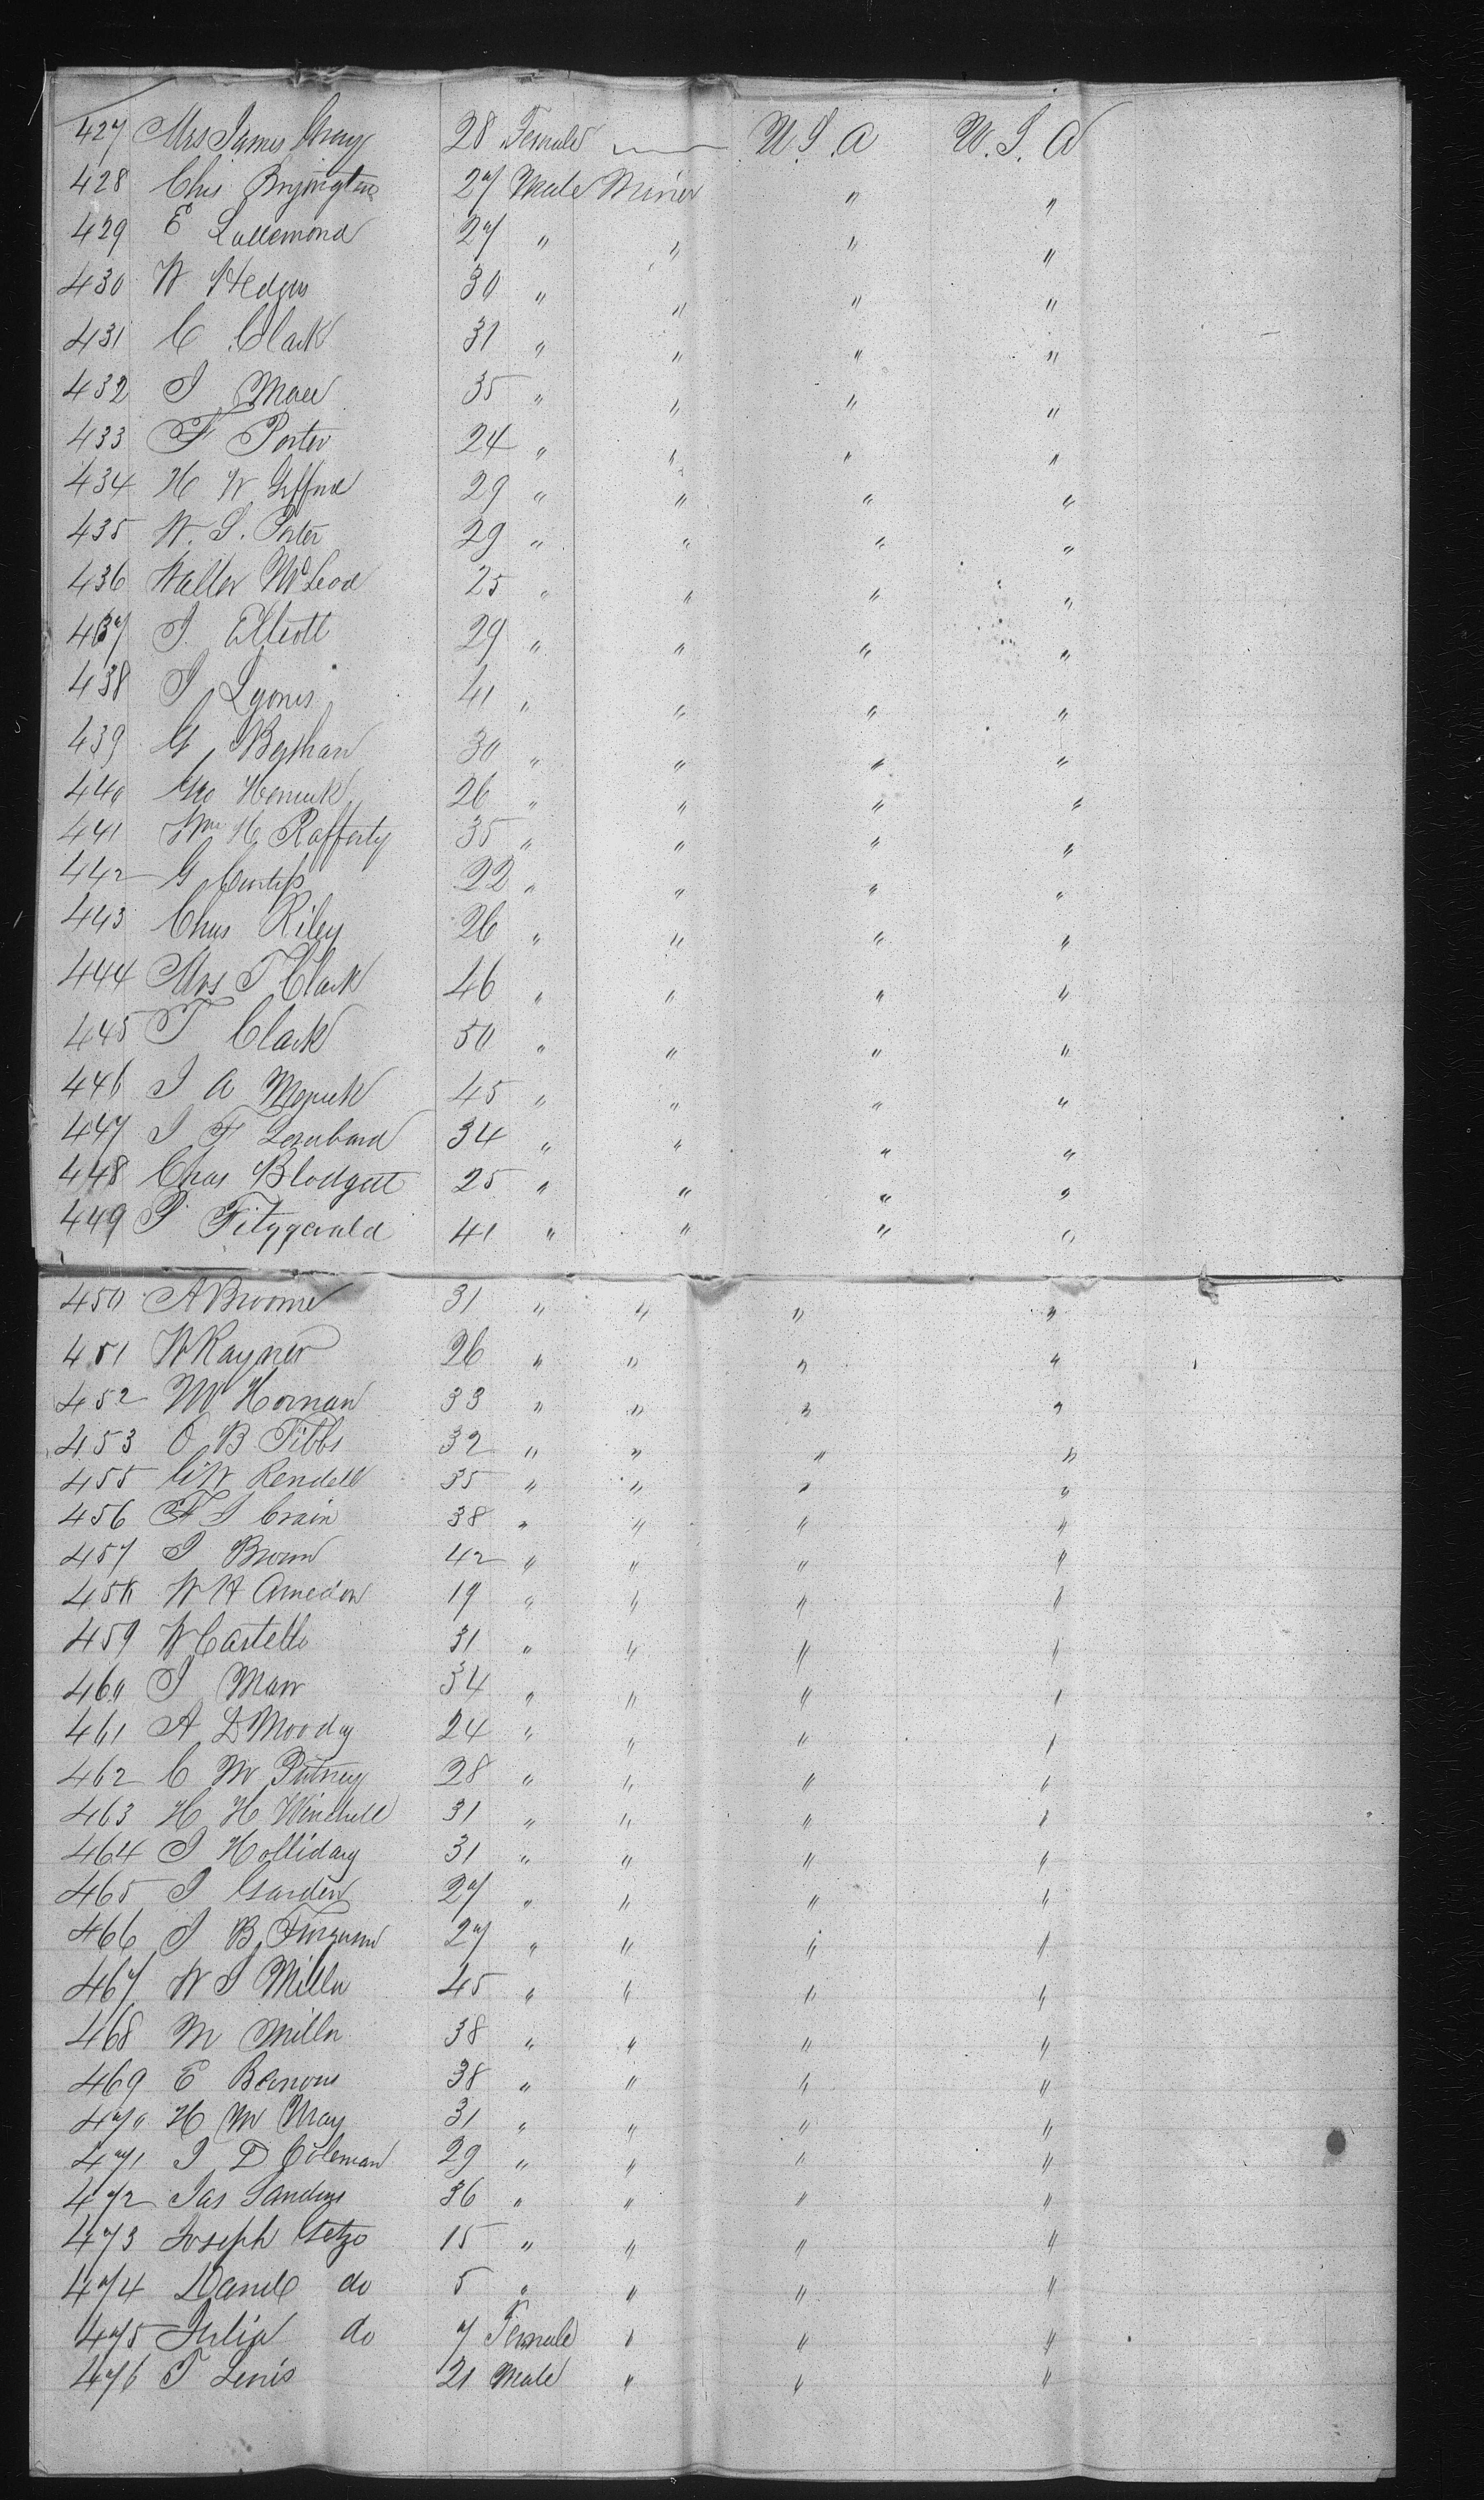 427 Mrs James 28 Female U.S.A U.S.A
428 Chs 27 Male Miner " "
429 E Lallemond 27 " " " "
430 W Hedges 30 " " " "
431 C Clark 31 " " " "
432 J 35 " " " "
433 F Porter 24 " " " "
434 H W Gifford 29 " " " "
435 W. S. Porter 29 " " " "
436 Walter McLeod 25 " " " "
437 J. Elliott 29 " " " "
438 J Lyons 41 " " " "
439 G 30 " " " "
440 Geo 26 " " " "
441 Wm H Rafferty 35 " " " "
442 G Curtiss 22 " " " "
443 Chas Riley 26 " " " "
444 Mrs T Clark 46 " " " "
445 T Clark 50 " " " "
446 J A 45 " " " "
447 J F Lombard 34 " " " "
448 Chas Blodgett 25 " " " "
449 P Fitzgerald 41 " " " "
450 A Broome 31 " " " "
451 W Rayner 26 " " " "
452 M Hornan 33 " " " "
453 O B Tibbs 32 " " " "
455 C W Rendell 35 " " " "
456 F J Crain 38 " " " "
457 J Brown 42 " " " "
458 W H Amedon 19 " " " "
459 W Castello 31 " " " "
460 J Marr 34 " " " "
461 A D Moody 24 " " " "
462 C M Putney 28 " " " "
463 H H Winchell 31 " " " "
464 J Holliday 31 " " " "
465 J Garden 27 " " " "
466 J B Furguson 27 " " " "
467 W J Miller 45 " " " "
468 M Miller 38 " " " "
469 E 38 " " " "
470 H M May 31 " " " "
471 J D Coleman 29 " " " "
472 Jas Sanders 36 " " " "
473 Joseph Getzo 15 " " " "
474 Daniel do 5 " " " "
475 Julia do 7 Female " " "
476 T Lewis 21 Male " " "